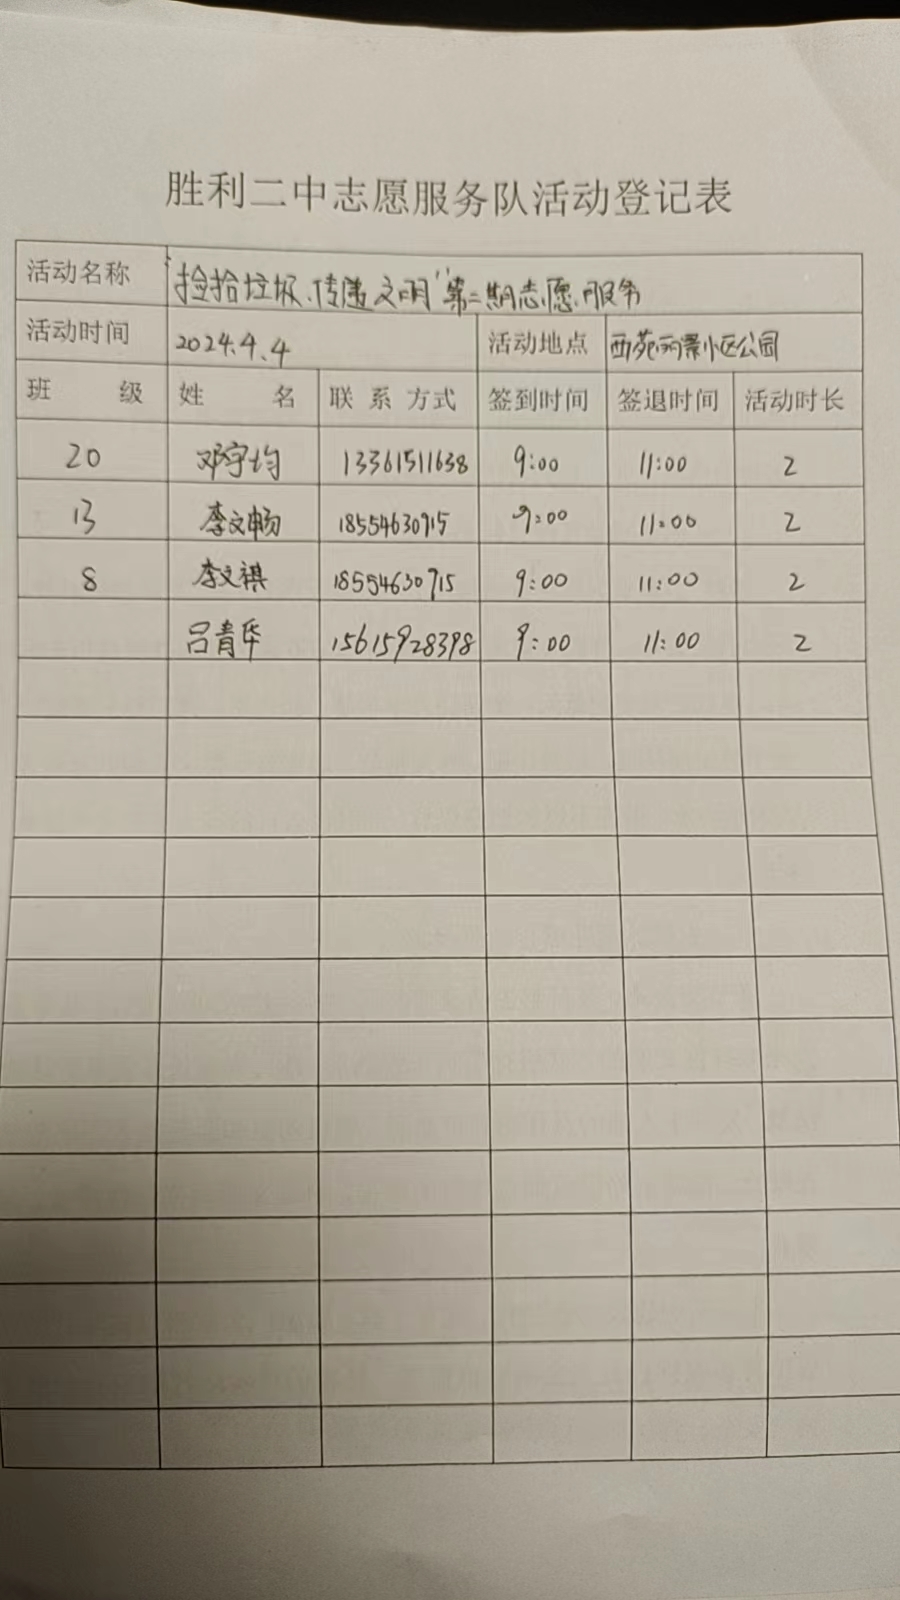 胜利二中志愿服务队活动登记表
活动名称 “捡拾垃圾、传递文明”第二期志愿服务
活动时间 2024.4.4 活动地点 西苑丽景小区公园
班 级 姓 名 联系方式 签到时间 签退时间 活动时长
20 邓宇均 13361511638 9:00 11:00 2
13 李文畅 18554630915 9:00 11:00 2
8 李文祺 18554630915 9:00 11:00 2
吕青华 15615928398 9:00 11:00 2